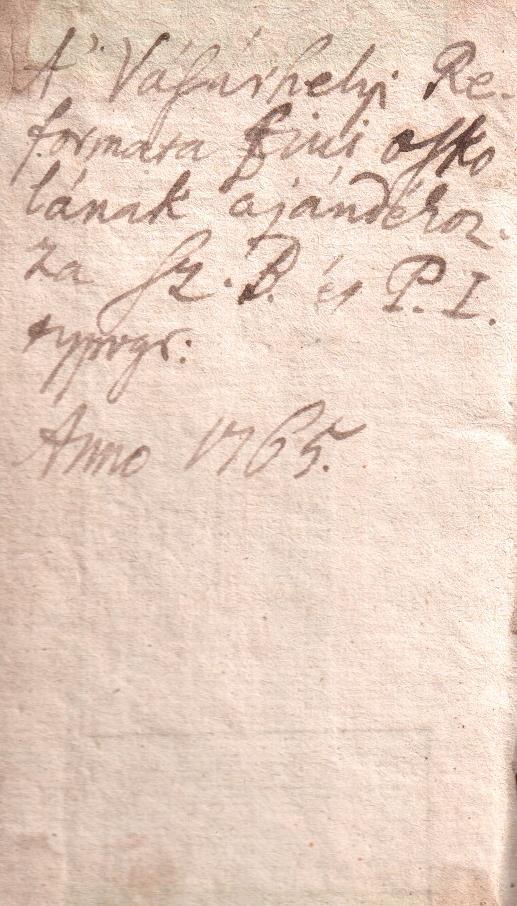 A' Vásárhelyi Re-
formata Fiúi osko
lának ajándékoz-
za Sz. B. és P. I.
typogr:
Anno 1765.